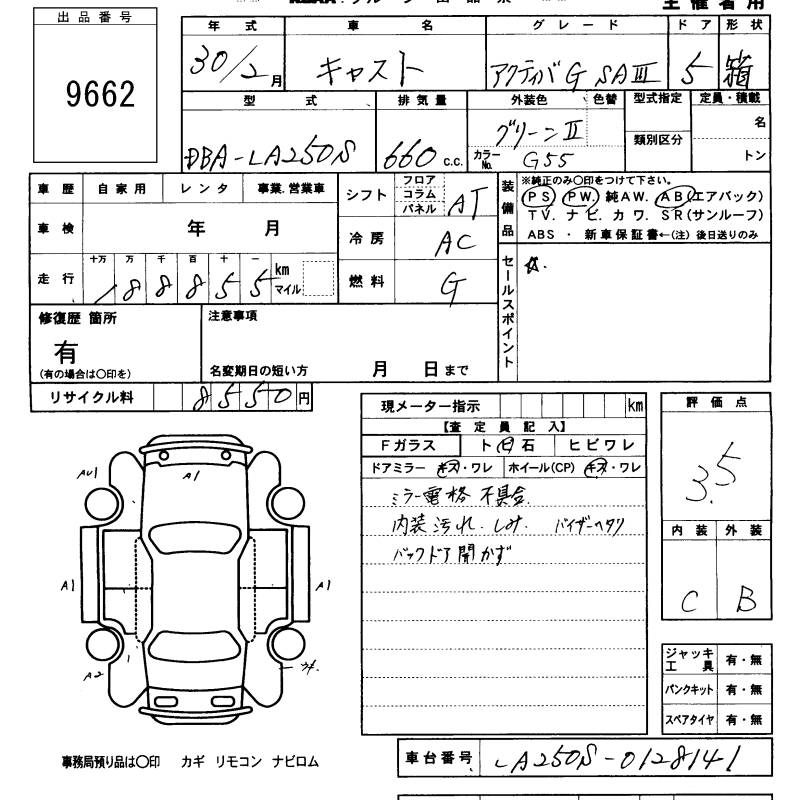 出品番号
9662
年式 車名 グレード ドア 形状
30/2月 キャスト アクティバG SAⅢ 5 箱
型式 排気量 外装色 色替 型式指定 定員・積載
DBA-LA250S 660 c.c. グリーンⅡ 類別区分 名
カラーNo. G55 トン
車歴 自家用 レンタ 事業.営業車
シフト フロア コラム パネル AT
装備品 ※純正のみ〇印をつけて下さい。
PS PW. 純AW. AB(エアバック)
TV. ナビ. カワ. SR(サンルーフ)
ABS ・ 新車保証書←(注) 後日送りのみ
車検 年 月
冷房 AC
走行 十万 万 千 百 十 一
188855 km マイル
燃料 G
セールスポイント ☆.
修復歴 箇所
有
(有の場合は〇印を)
注意事項
名変期日の短い方 月 日まで
リサイクル料 8550円
現メーター指示 km
評価点
3.5
【査定員記入】
Fガラス ト ビ 石 ヒビワレ
ドアミラー キズ・ワレ ホイール(CP) キズ・ワレ
ミラー電格 不具合
内装 汚れ.しみ. バイザーヘタリ
バックドア開かず
内装 外装
C B
AU1 A1
A1 A1
A2
ジャッキ工具 有・無
パンクキット 有・無
スペアタイヤ 有・無
事務局預り品は〇印 カギ リモコン ナビロム
車台番号 LA250S-0128141